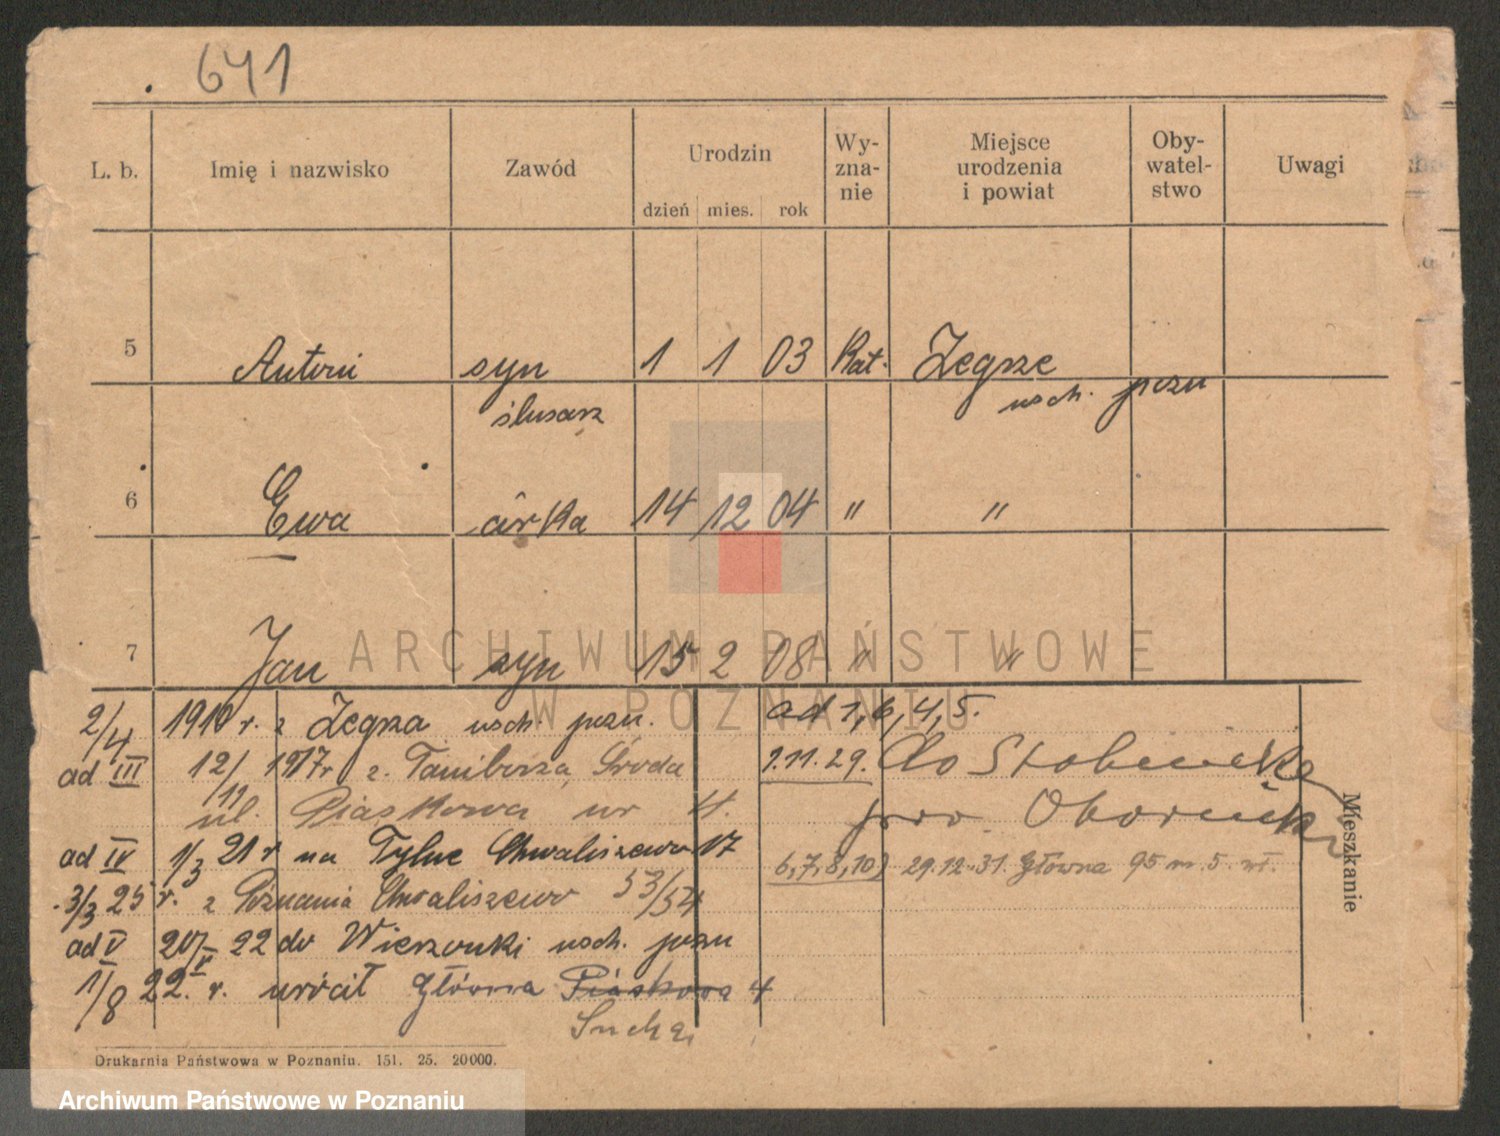 641
L. b. Imię i nazwisko Zawód Urodzin Wy- Miejsce Oby- Uwagi
zna- urodzenia watel-
nie i powiat stwo
dzień mies. rok
5 Antoni syn 1 1 03 Kat. Żegrze
ślusarz wsch. pozn
6 Ewa córka 14 12 04 " "
7 Jan syn 15 2 08 " "
ARCHIWUM PAŃSTWOWE
W POZNANIU
2/4 1910 r. z Żegrza wsch. pozn. ad 1, 6, 4, 5.
ad III 12/11 1917r z. Taniborza, Środa 7.11.29. do
ul. Piaskowa nr 4. pow. Oborniki
Mieszkanie
ad IV 1/3 21 r na Tylne Chwaliszewo 17
6, 7, 8, 10) 29.12.31. Główna 95 m. 5. wł.
3/3 25 r. z Poznania Chwaliszewo 53/54
ad V 20/V 22 do Wierzonki wsch. pozn
1/8 22. r. wrócił Główna Piaskowa 4
Sucha
Drukarnia Państwowa w Poznaniu. 151. 25. 20000.
Archiwum Państwowe w Poznaniu